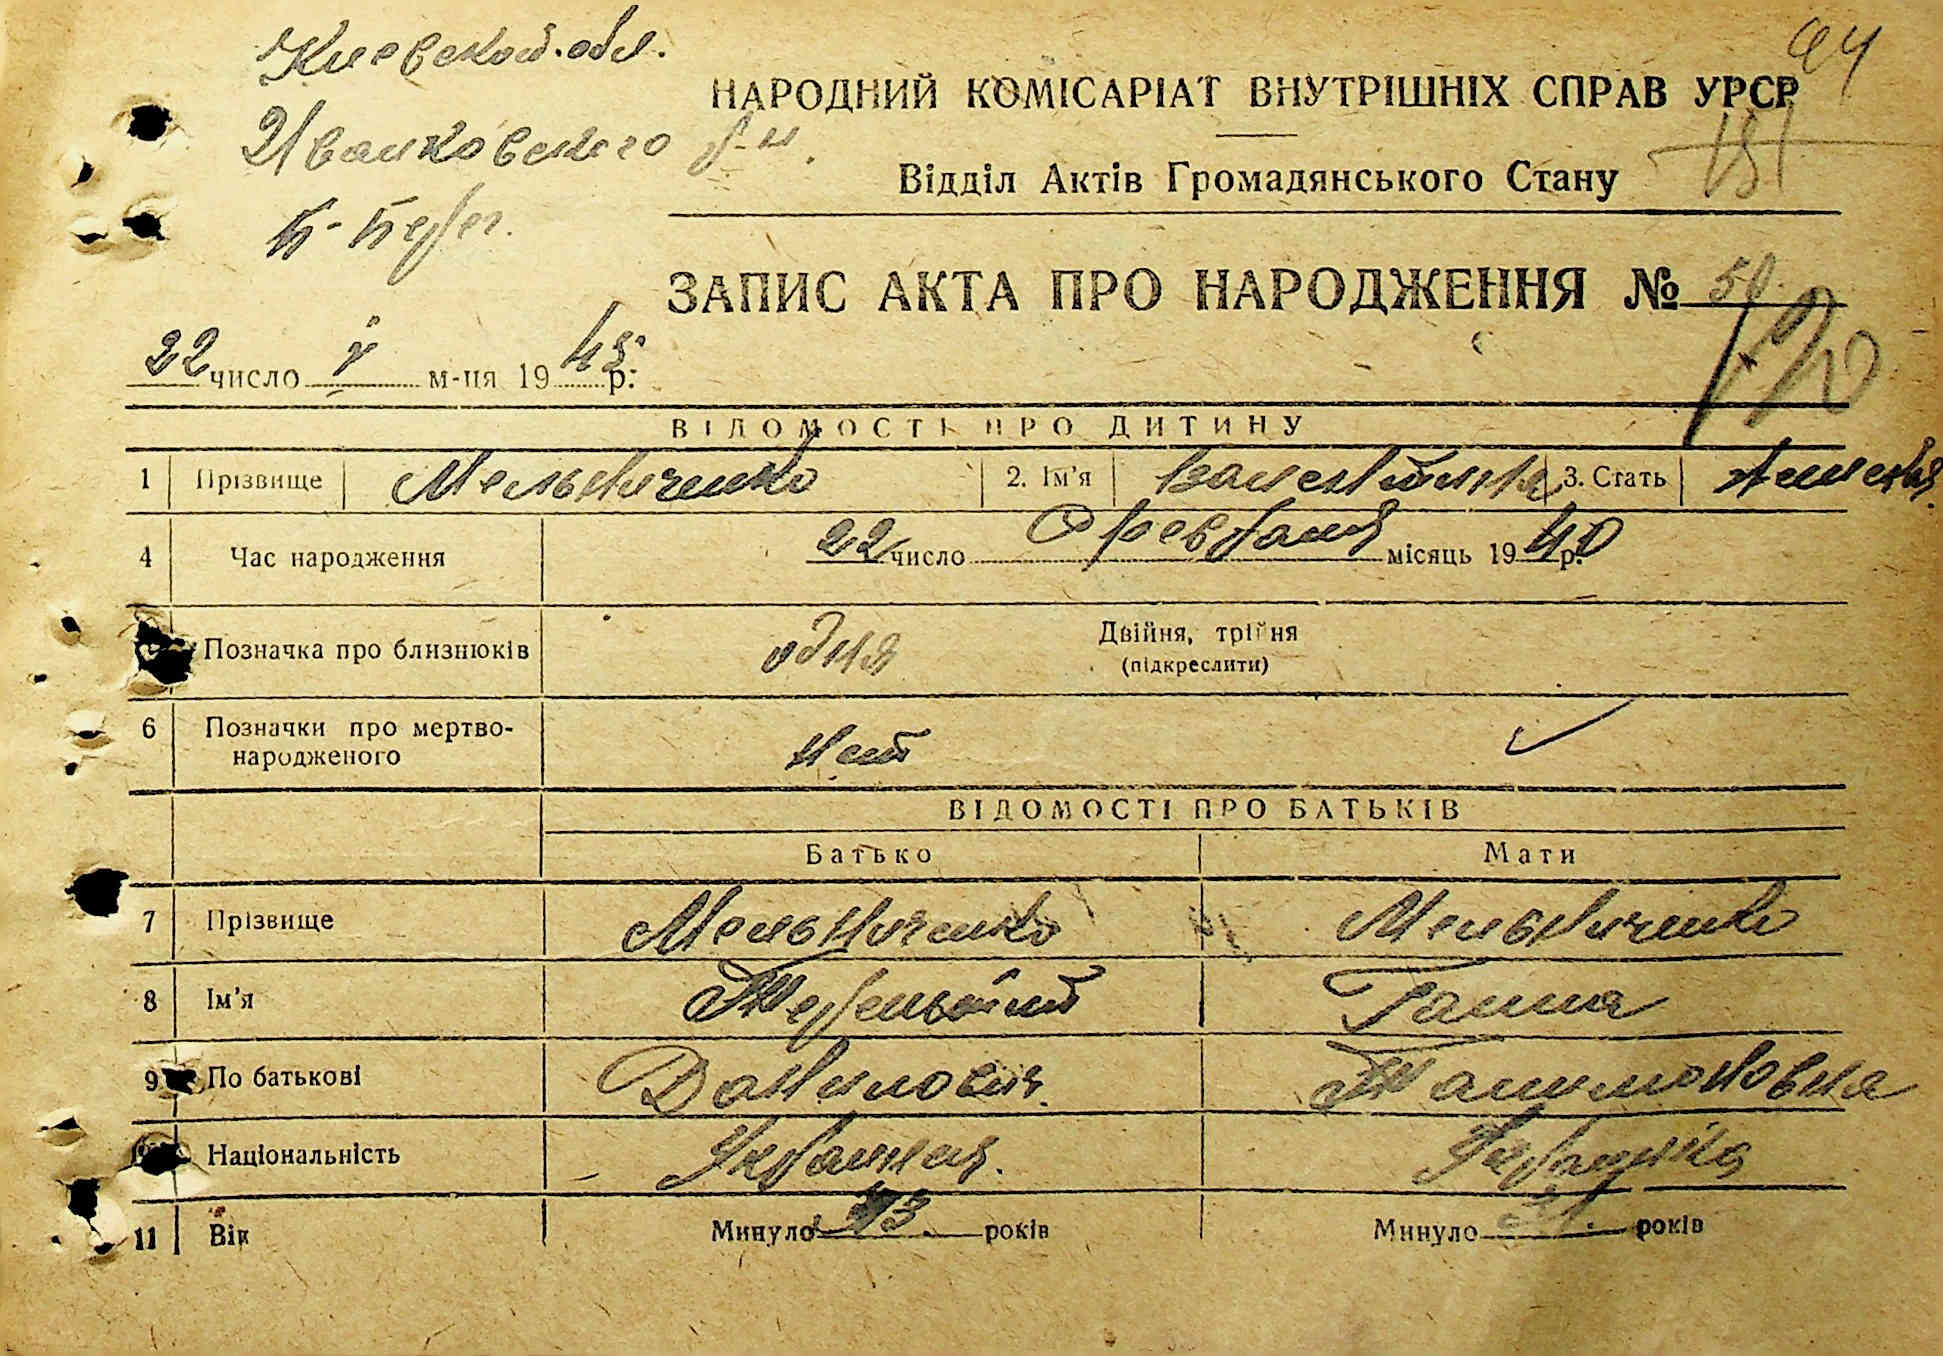 Киевской обл. 94
НАРОДНИЙ КОМІСАРІАТ ВНУТРІШНІХ СПРАВ УРСР
Иванковского р-н.
Відділ Актів Громадянського Стану
ЗАПИС АКТА ПРО НАРОДЖЕННЯ № 50.
22 число V м-ця 1945 р.
ВІДОМОСТІ ПРО ДИТИНУ
1 Прізвище Мельниченко 2. Ім'я Валентина 3. Стать женская
4 Час народження 22 число Февраля місяць 1940 р.
Позначка про близнюків одна Двійня, трійня
(підкреслити)
6 Позначки про мертво- нет
народженого
ВІДОМОСТІ ПРО БАТЬКІВ
Батько Мати
7 Прізвище Мельниченко Мельниченко
8 Ім'я Терентий Ганна
9 По батькові Данилович
Національність Украинец. Украинка
11 Вік Минуло 43 років Минуло років